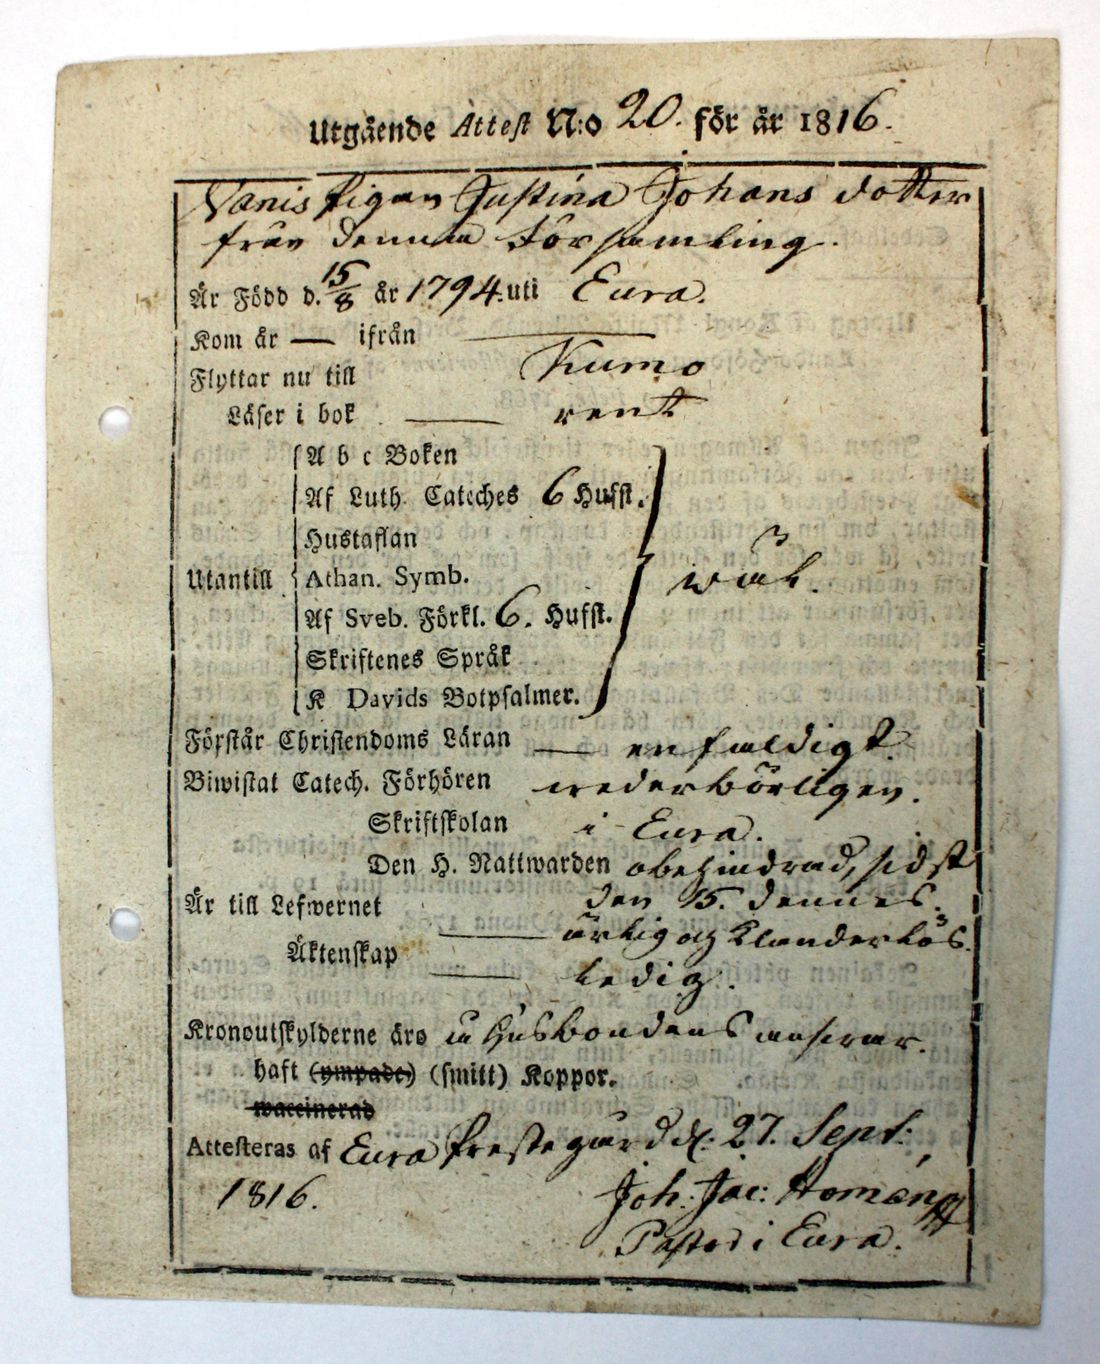 Utgående Attest N:o 20. för år 1816.
Vanis Pigan Justina Johans dotter
från denna Församling.
Är Född d. 15/8 år 1794. uti Eura.
Kom år — ifrån —
Flyttar nu till Kumo
Läser i bok — rent
A b c Boken
Af Luth. Cateches 6 Hufst.
Hustaflan
Utantill Athan. Symb. wäl.
Af Sveb. Förkl. 6. Hufst.
Skriftenes Språk
K Davids Botpsalmer.
Förstår Christendoms Läran — enfaldigt.
Biwistat Catech. Förhören wederbörligen.
Skriftskolan i Eura.
Den H. Nattwarden obehindrad, sidst
den 15. dennes.
Är till Lefwernet — ärlig och klanderlös.
Äktenskap — ledig.
Kronoutskylderne äro å Husbondens answar.
haft (ympade) (smitt) Koppor.
waccinerad
Attesteras af Eura Prestegård d. 27. Sept.
1816. Joh. Jac: Homén
Pastor i Eura.